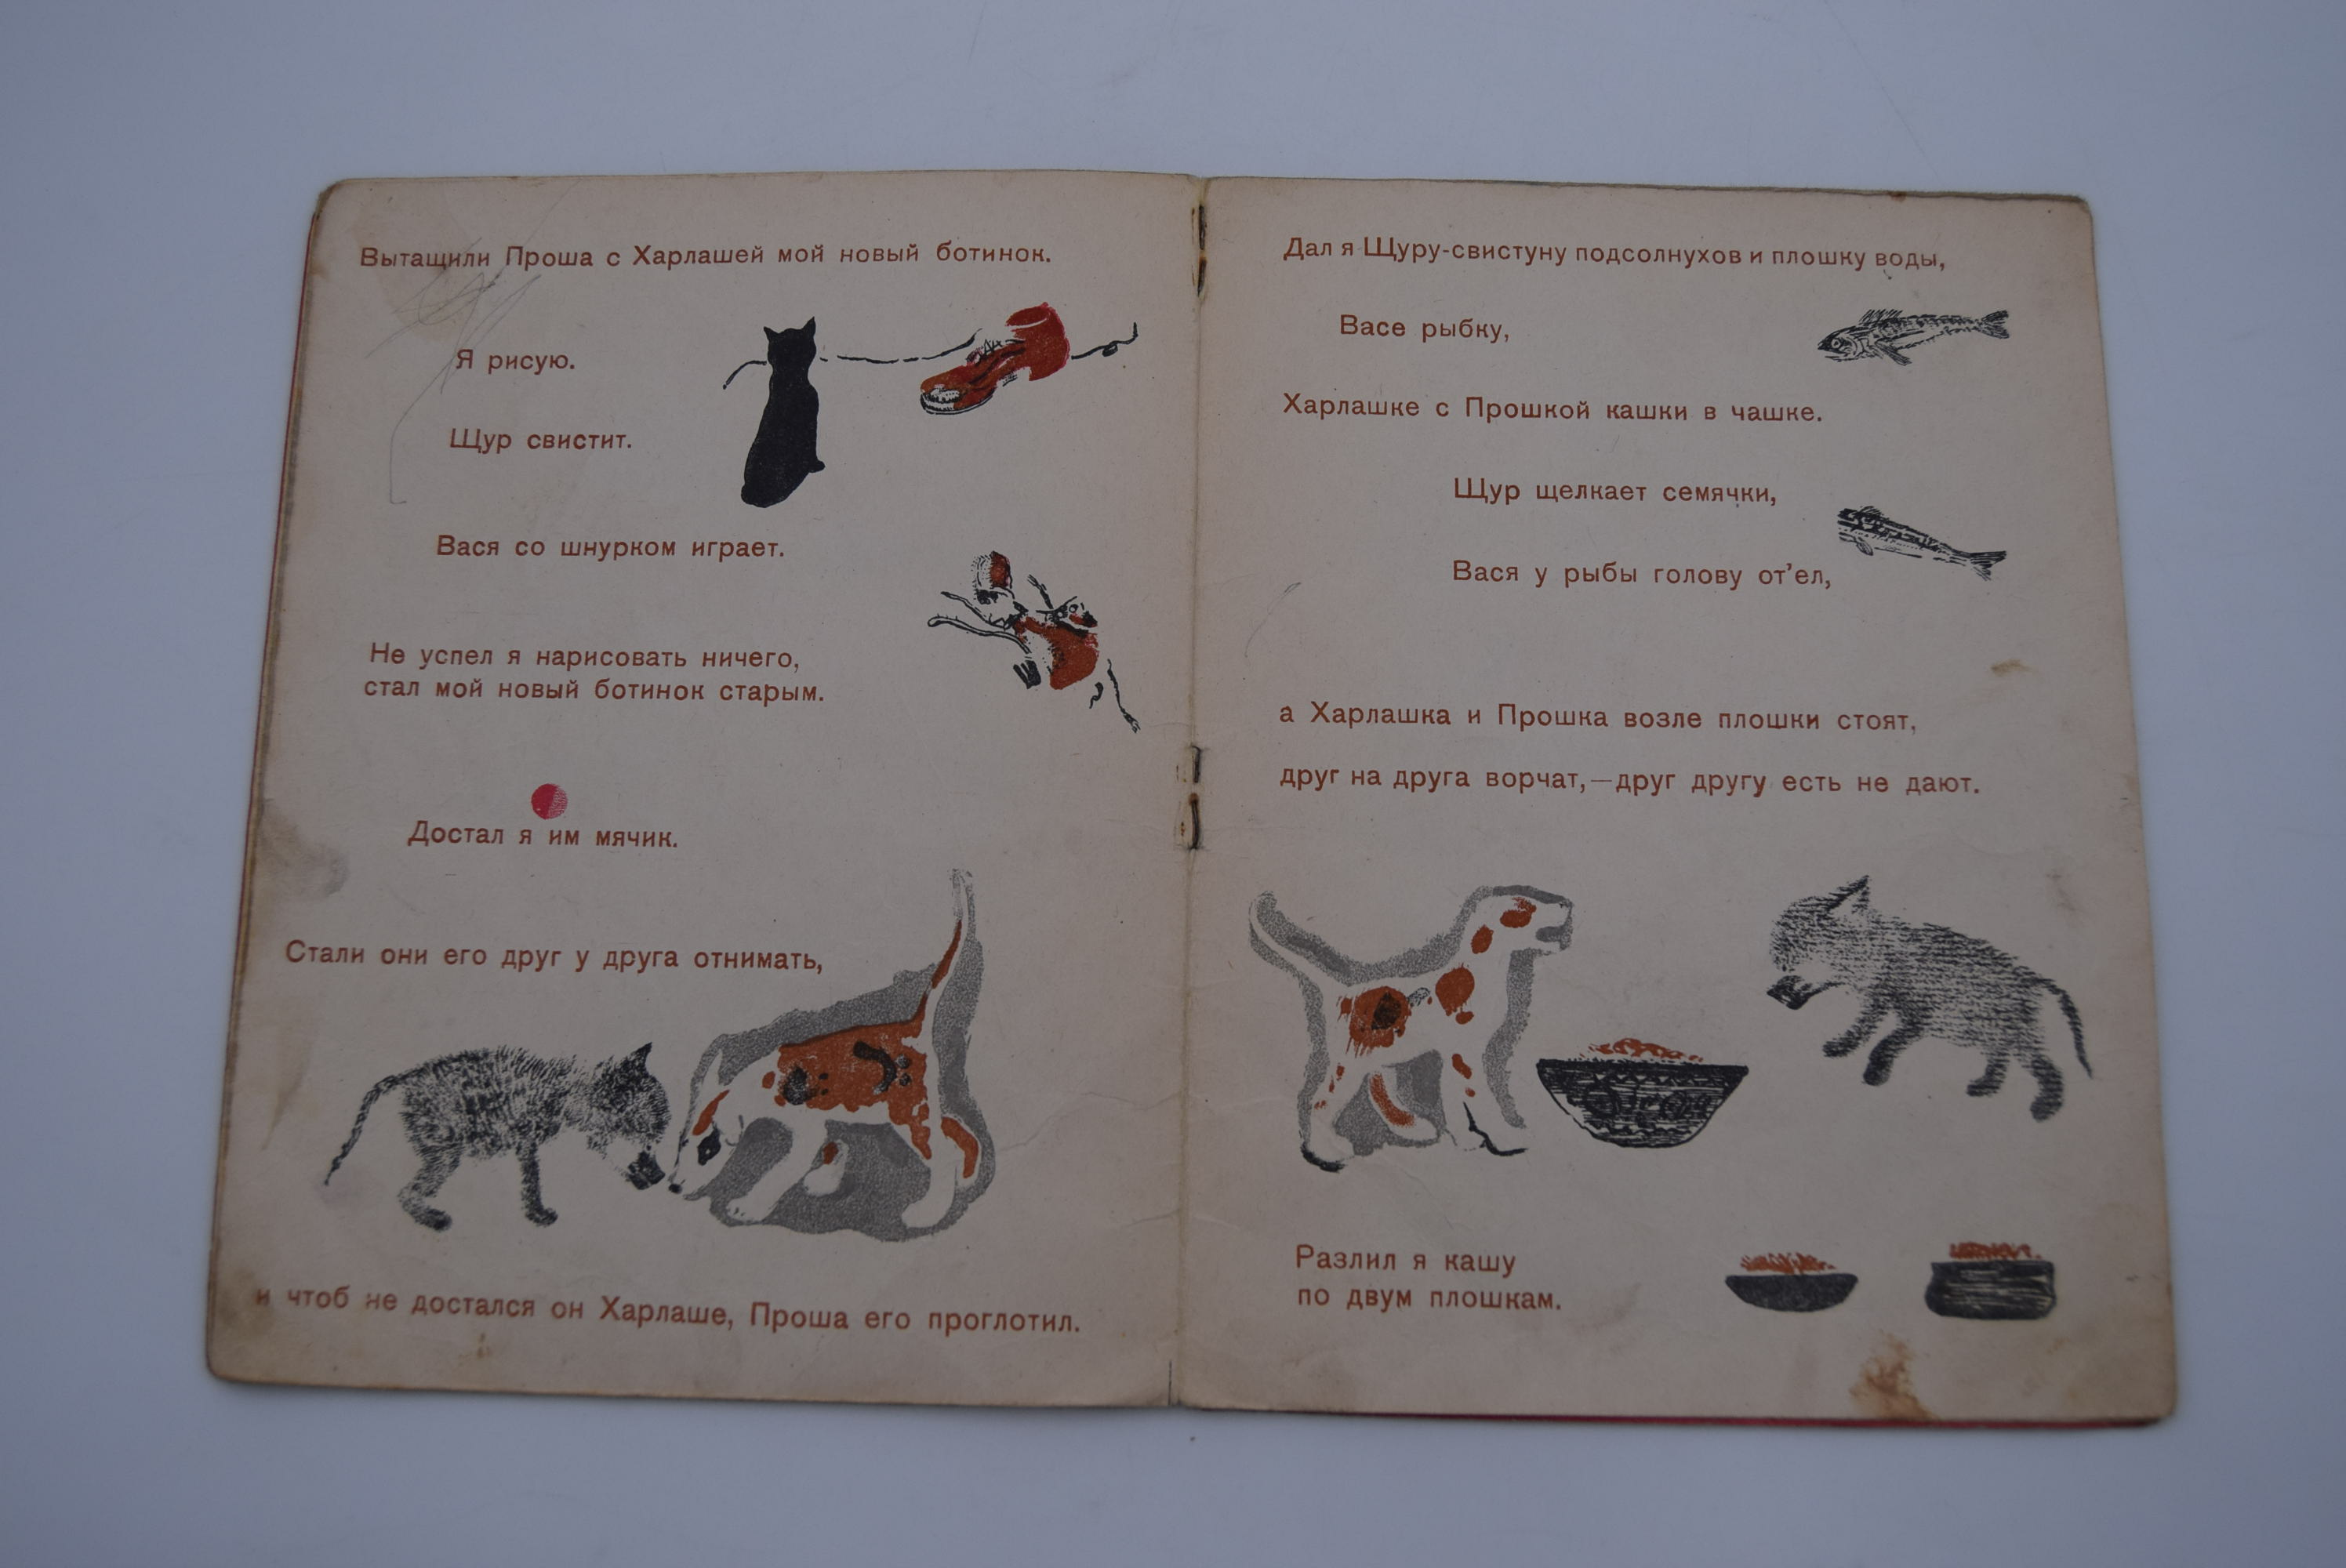 Вытащили Проша с Харлашей мой новый ботинок.
Я рисую.
Щур свистит.
Вася со шнурком играет.
Не успел я нарисовать ничего,
стал мой новый ботинок старым.
Достал я им мячик.
Стали они его друг у друга отнимать,
и чтоб не достался он Харлаше, Проша его проглотил.
Дал я Щуру-свистуну подсолнухов и плошку воды,
Васе рыбку,
Харлашке с Прошкой кашки в чашке.
Щур щелкает семячки,
Вася у рыбы голову от'ел,
а Харлашка и Прошка возле плошки стоят,
друг на друга ворчат,—друг другу есть не дают.
Разлил я кашу
по двум плошкам.